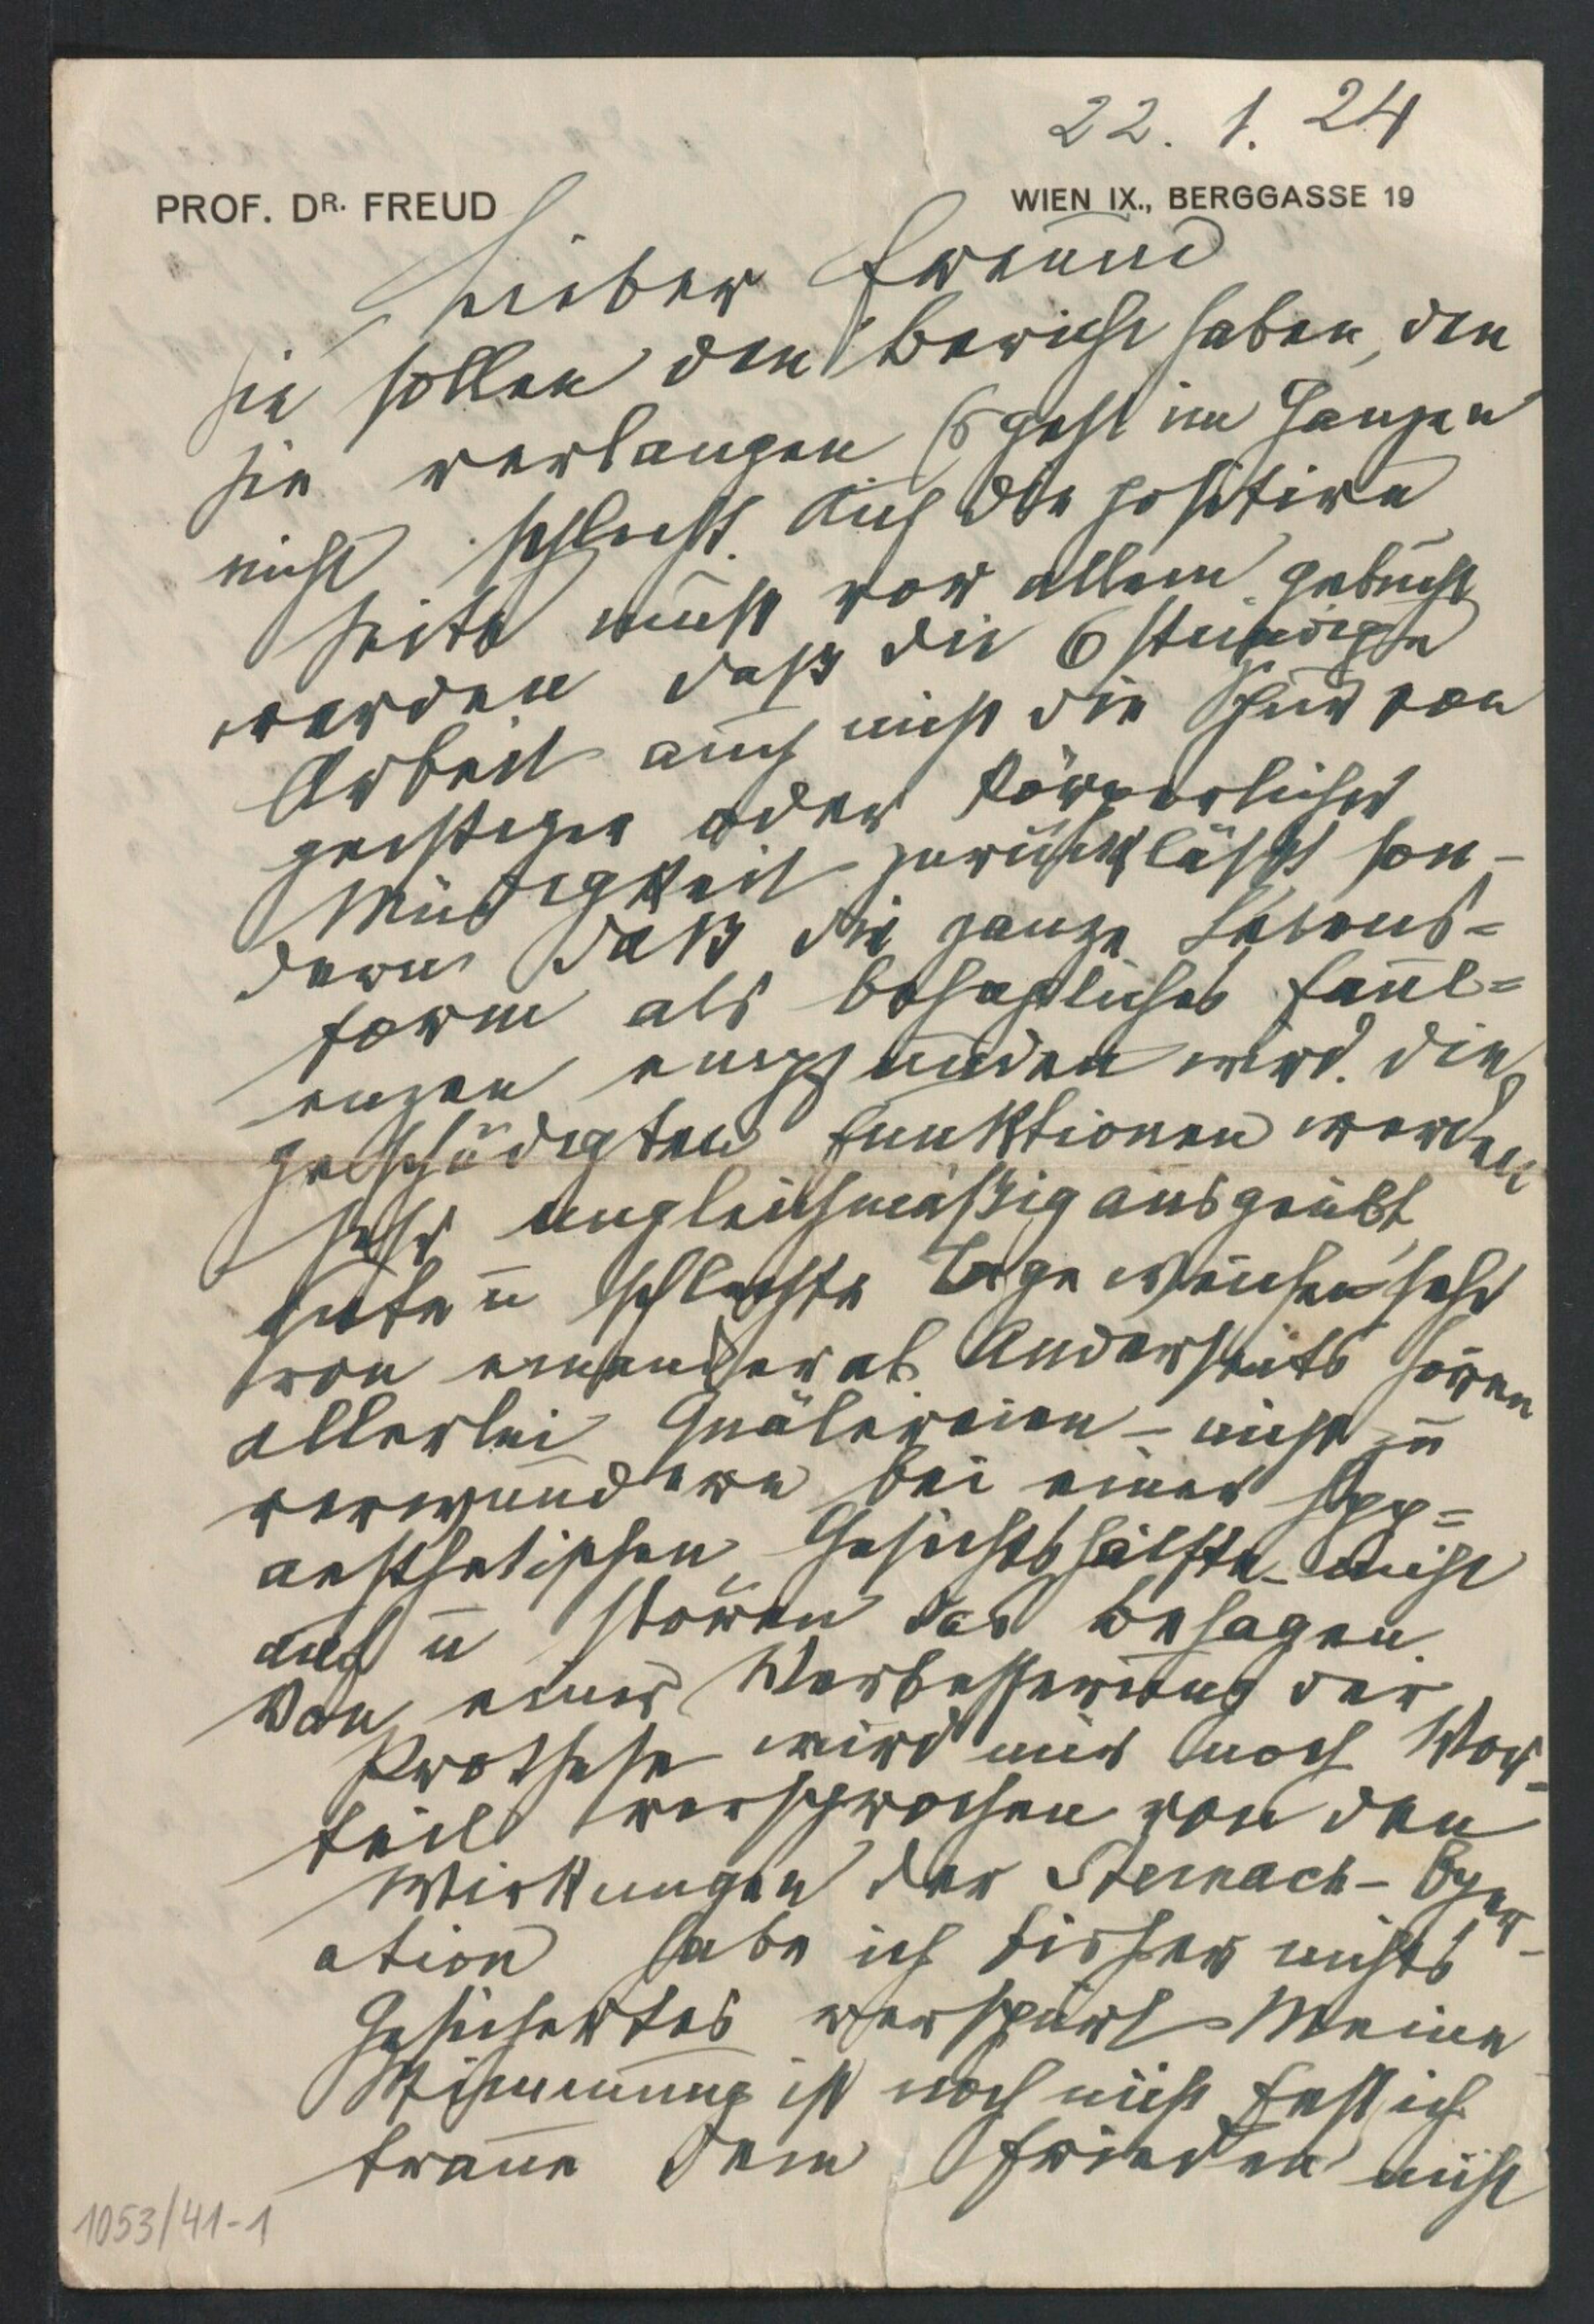 22. 1. 24
PROF. DR. FREUD
WIEN IX., BERGGASSE 19
Lieber Freund
Sie sollen den Bericht haben, den
Sie verlangen. Es geht im Ganzen
nicht schlecht. Auf der positiven
Seite muß vor allem gebucht
werden daß die 6 stündige
Arbeit auch nicht die Spur von
geistiger oder körperlicher
Müdigkeit zurückläßt son-
dern daß die ganze Lebens-
form als behagliches Faul-
enzen empfunden wird. Die
geschädigten Funktionen werden
sehr ungleichmäßig ausgeübt,
gute u schlechte Tage weichen sehr
von einander ab. Anderseits hören
allerlei Quälereien – nicht zu
verwundern bei einer hyp-
aesthetischen Gesichtshälfte – nicht
auf u stören das Behagen.
Von einer Verbesserung der
Prothese wird mir noch Vor-
teil versprochen von den
Wirkungen der Steinach-Oper-
ation habe ich bisher nichts
Gesichertes verspürt. Meine
Stimmung ist noch nicht fest, ich
traue dem Frieden nicht
1053/41-1